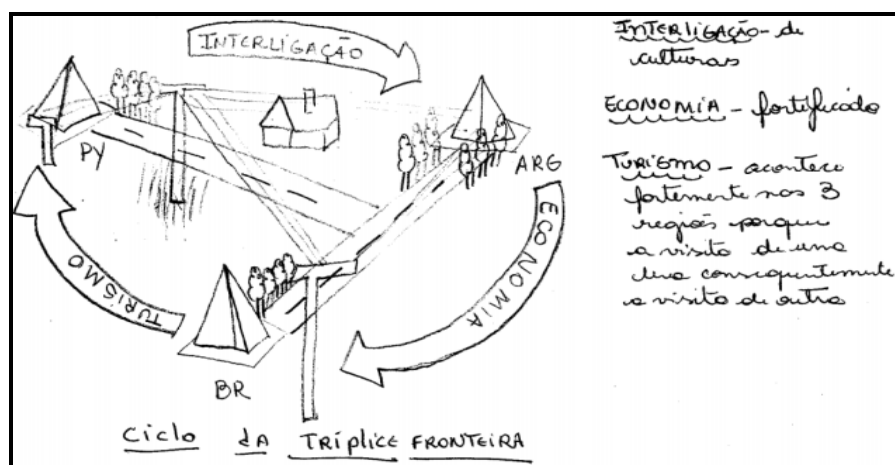 INTERLIGAÇÃO
PY
ARG
ECONOMIA
TURISMO
BR
CICLO DA TRÍPLICE FRONTEIRA
INTERLIGAÇÃO - de
culturas
ECONOMIA - fortificada
TURISMO - acontece
fortemente nas 3
regiões porque
a visita de uma
leva consequentemente
a visita de outra